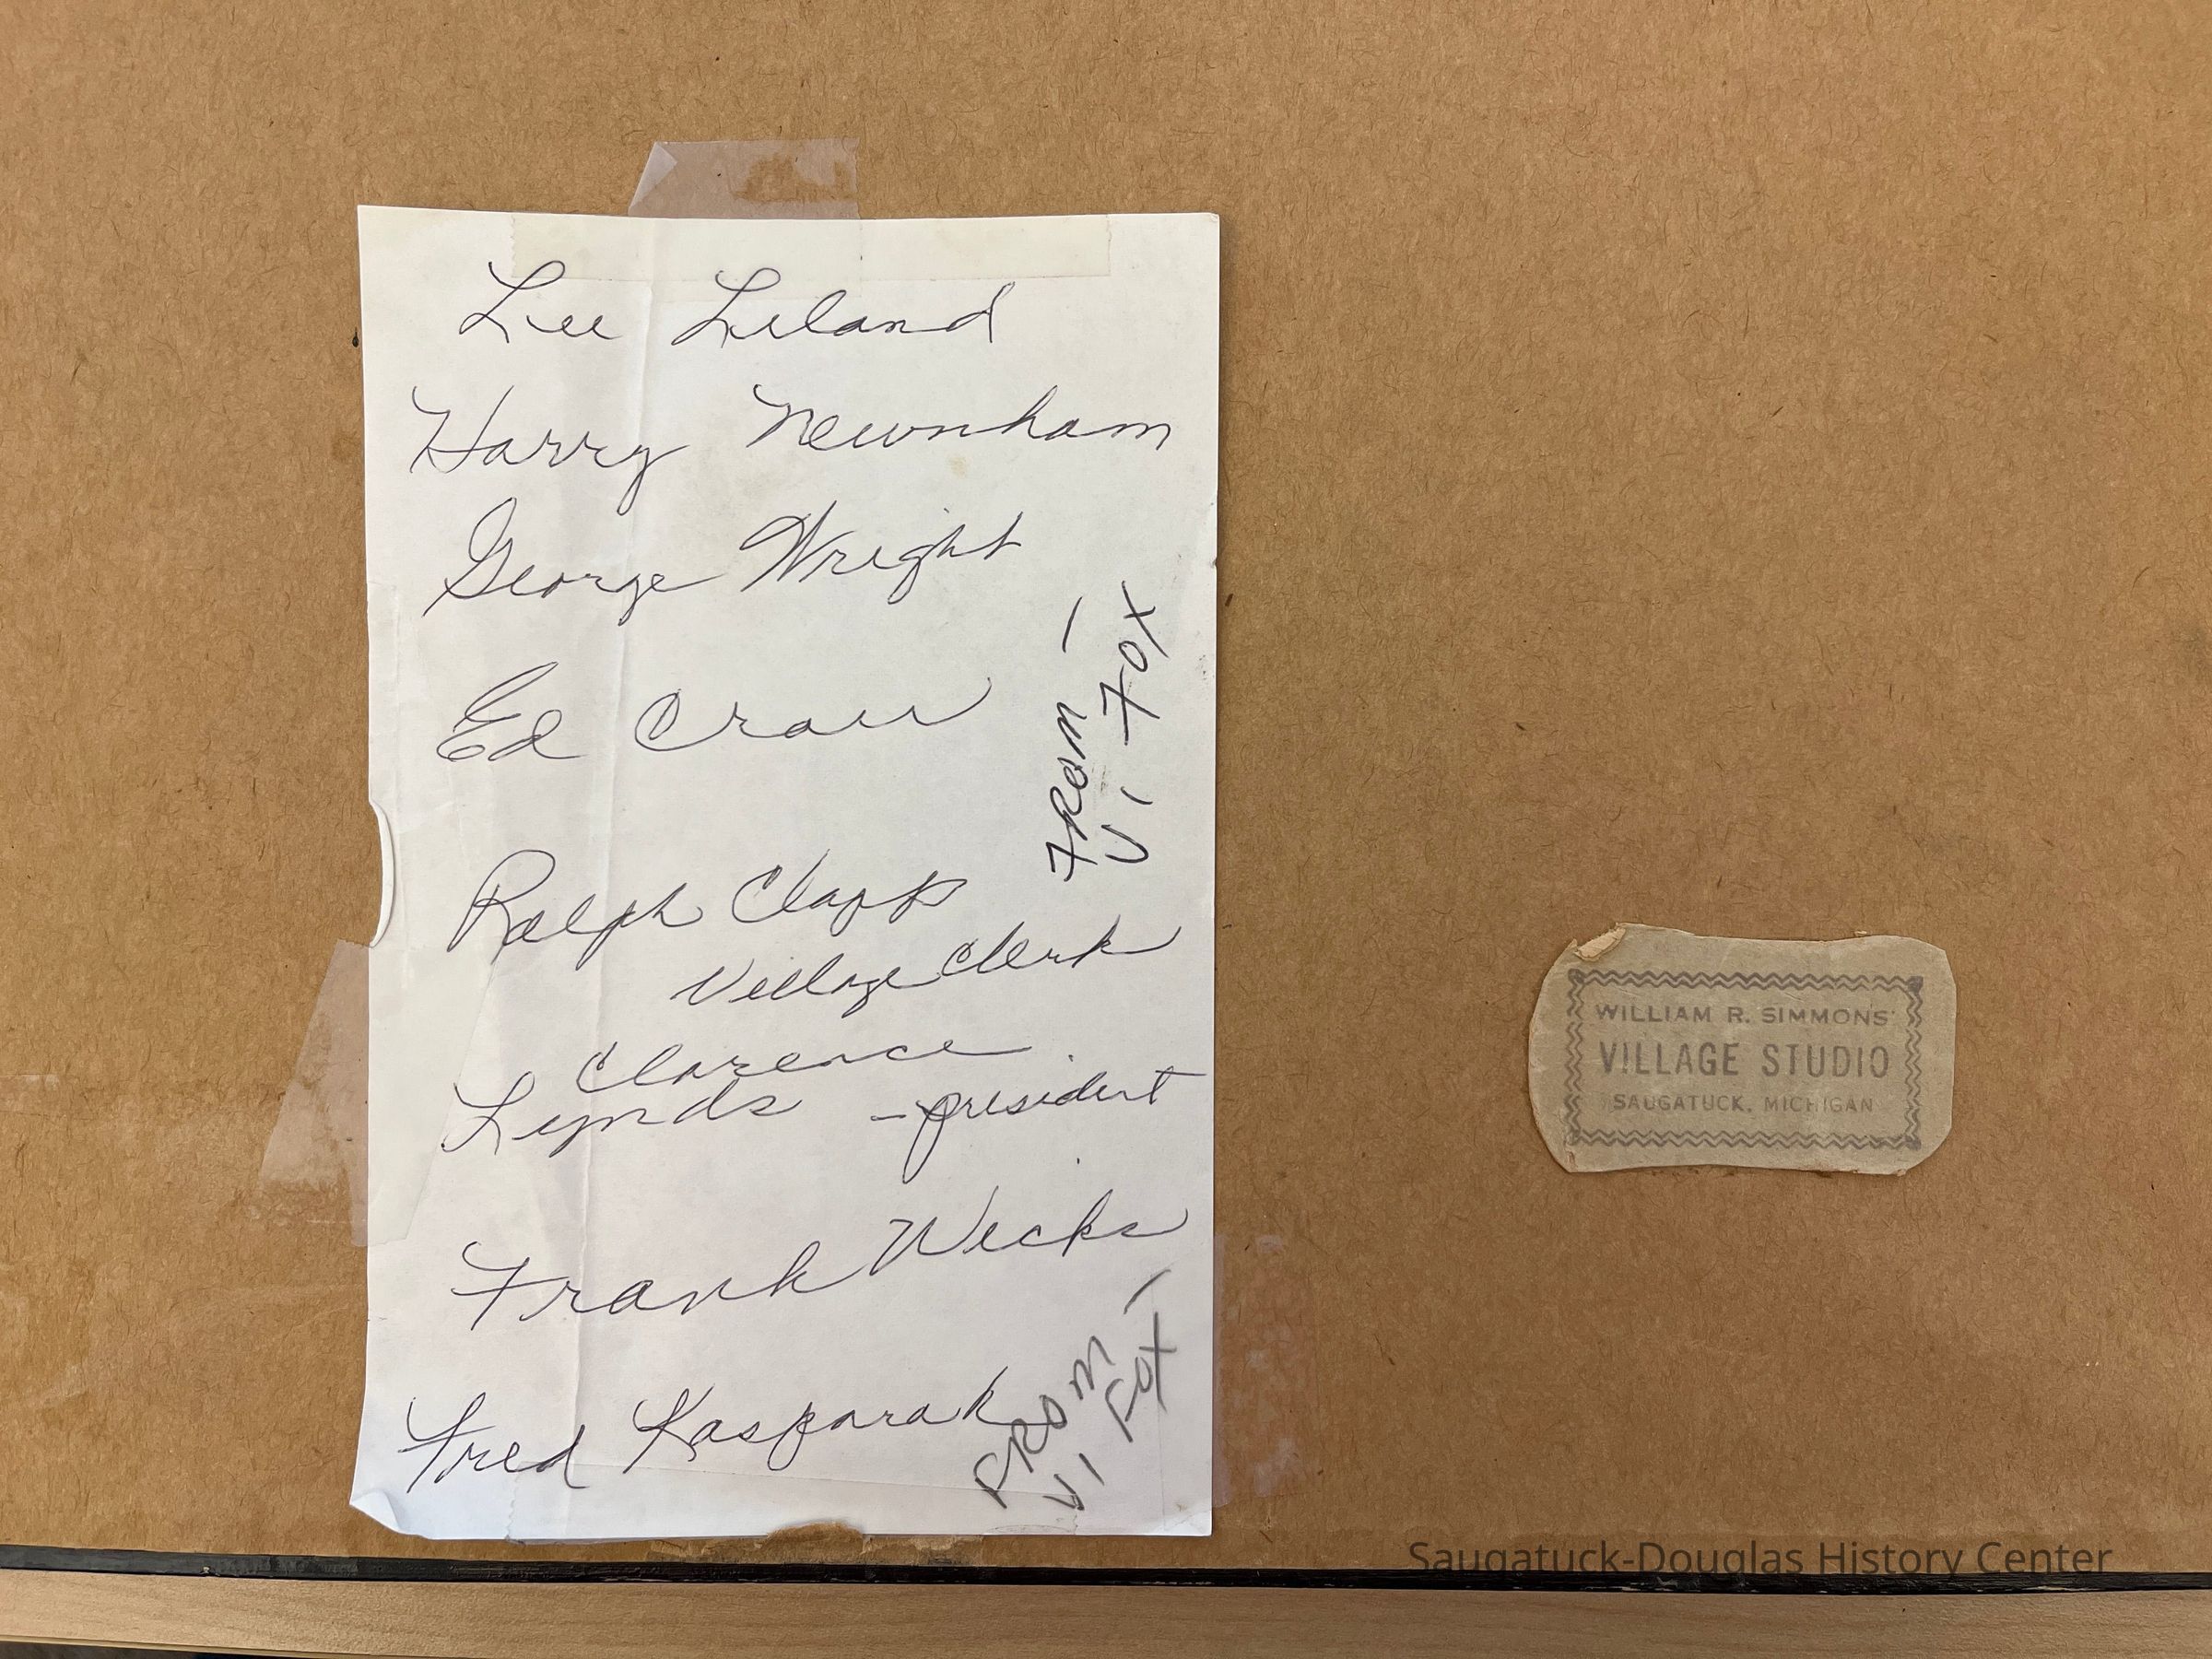 Lee Leland
Harry Newnham
George Wright
Ed Crow
Ralph Clapp
Village Clerk
Clarence
Lynds - president
Frank Wicks
Fred Kasparak
FROM -
VI FOX
FROM -
VI FOX
WILLIAM R. SIMMONS'
VILLAGE STUDIO
SAUGATUCK, MICHIGAN
Saugatuck-Douglas History Center